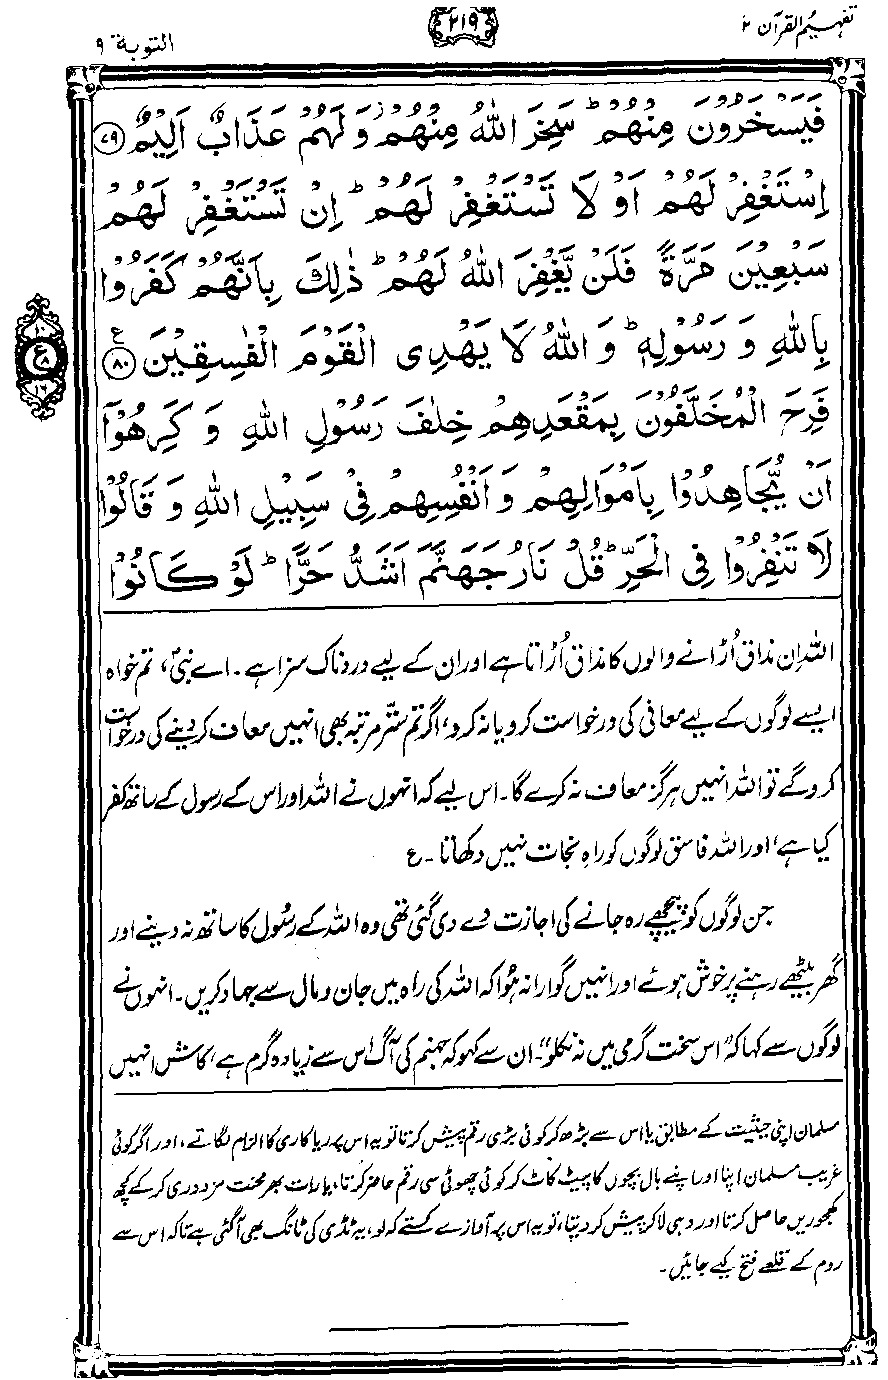 تفہیم القرآن ۲
۲۱۹
التوبۃ ۹
فَيَسْخَرُوْنَ مِنْهُمْ ؕ سَخِرَ اللّٰهُ مِنْهُمْ ؗ وَ لَهُمْ عَذَابٌ اَلِيْمٌ ﴿۷۹﴾
اِسْتَغْفِرْ لَهُمْ اَوْ لَا تَسْتَغْفِرْ لَهُمْ ؕ اِنْ تَسْتَغْفِرْ لَهُمْ
سَبْعِيْنَ مَرَّةً فَلَنْ يَّغْفِرَ اللّٰهُ لَهُمْ ؕ ذٰلِكَ بِاَنَّهُمْ كَفَرُوْا
بِاللّٰهِ وَ رَسُوْلِهٖ ؕ وَ اللّٰهُ لَا يَهْدِى الْقَوْمَ الْفٰسِقِيْنَ ﴿۸۰﴾ ع
۱۰
ع
۸
۱۶
فَرِحَ الْمُخَلَّفُوْنَ بِمَقْعَدِهِمْ خِلٰفَ رَسُوْلِ اللّٰهِ وَ كَرِهُوْٓا
اَنْ يُّجَاهِدُوْا بِاَمْوَالِهِمْ وَ اَنْفُسِهِمْ فِىْ سَبِيْلِ اللّٰهِ وَ قَالُوْا
لَا تَنْفِرُوْا فِى الْحَرِّ ؕ قُلْ نَارُ جَهَنَّمَ اَشَدُّ حَرًّا ؕ لَوْ كَانُوْا
اللہ ان مذاق اُڑانے والوں کا مذاق اُڑاتا ہے اور ان کے لیے دردناک سزا ہے۔ اے نبیؐ، تم خواہ
ایسے لوگوں کے لیے معافی کی درخواست کرو یا نہ کرو، اگر تم ستّر مرتبہ بھی انہیں معاف کر دینے کی درخواست
کرو گے تو اللہ انہیں ہرگز معاف نہ کرے گا۔ اس لیے کہ انہوں نے اللہ اور اس کے رسول کے ساتھ کفر
کیا ہے، اور اللہ فاسق لوگوں کو راہِ نجات نہیں دکھاتا۔ ع
جن لوگوں کو پیچھے رہ جانے کی اجازت دے دی گئی تھی وہ اللہ کے رسُول کا ساتھ نہ دینے اور
گھر بیٹھے رہنے پر خوش ہوئے اور انہیں گوارا نہ ہُوا کہ اللہ کی راہ میں جان و مال سے جہاد کریں۔ انہوں نے
لوگوں سے کہا کہ ”اس سخت گرمی میں نہ نکلو“۔ ان سے کہو کہ جہنم کی آگ اس سے زیادہ گرم ہے، کاش انہیں
مسلمان اپنی حیثیت کے مطابق یا اس سے بڑھ کر کوئی بڑی رقم پیش کرتا تو یہ اس پر ریاکاری کا الزام لگاتے، اور اگر کوئی
غریب مسلمان اپنا اور اپنے بال بچوں کا پیٹ کاٹ کر کوئی چھوٹی سی رقم حاضر کرتا، یا رات بھر محنت مزدوری کر کے کچھ
کھجوریں حاصل کرتا اور وہی لا کر پیش کر دیتا، تو یہ اس پر آوازے کستے کہ لو، یہ ٹڈی کی ٹانگ بھی آ گئی ہے تاکہ اس سے
روم کے قلعے فتح کیے جائیں۔